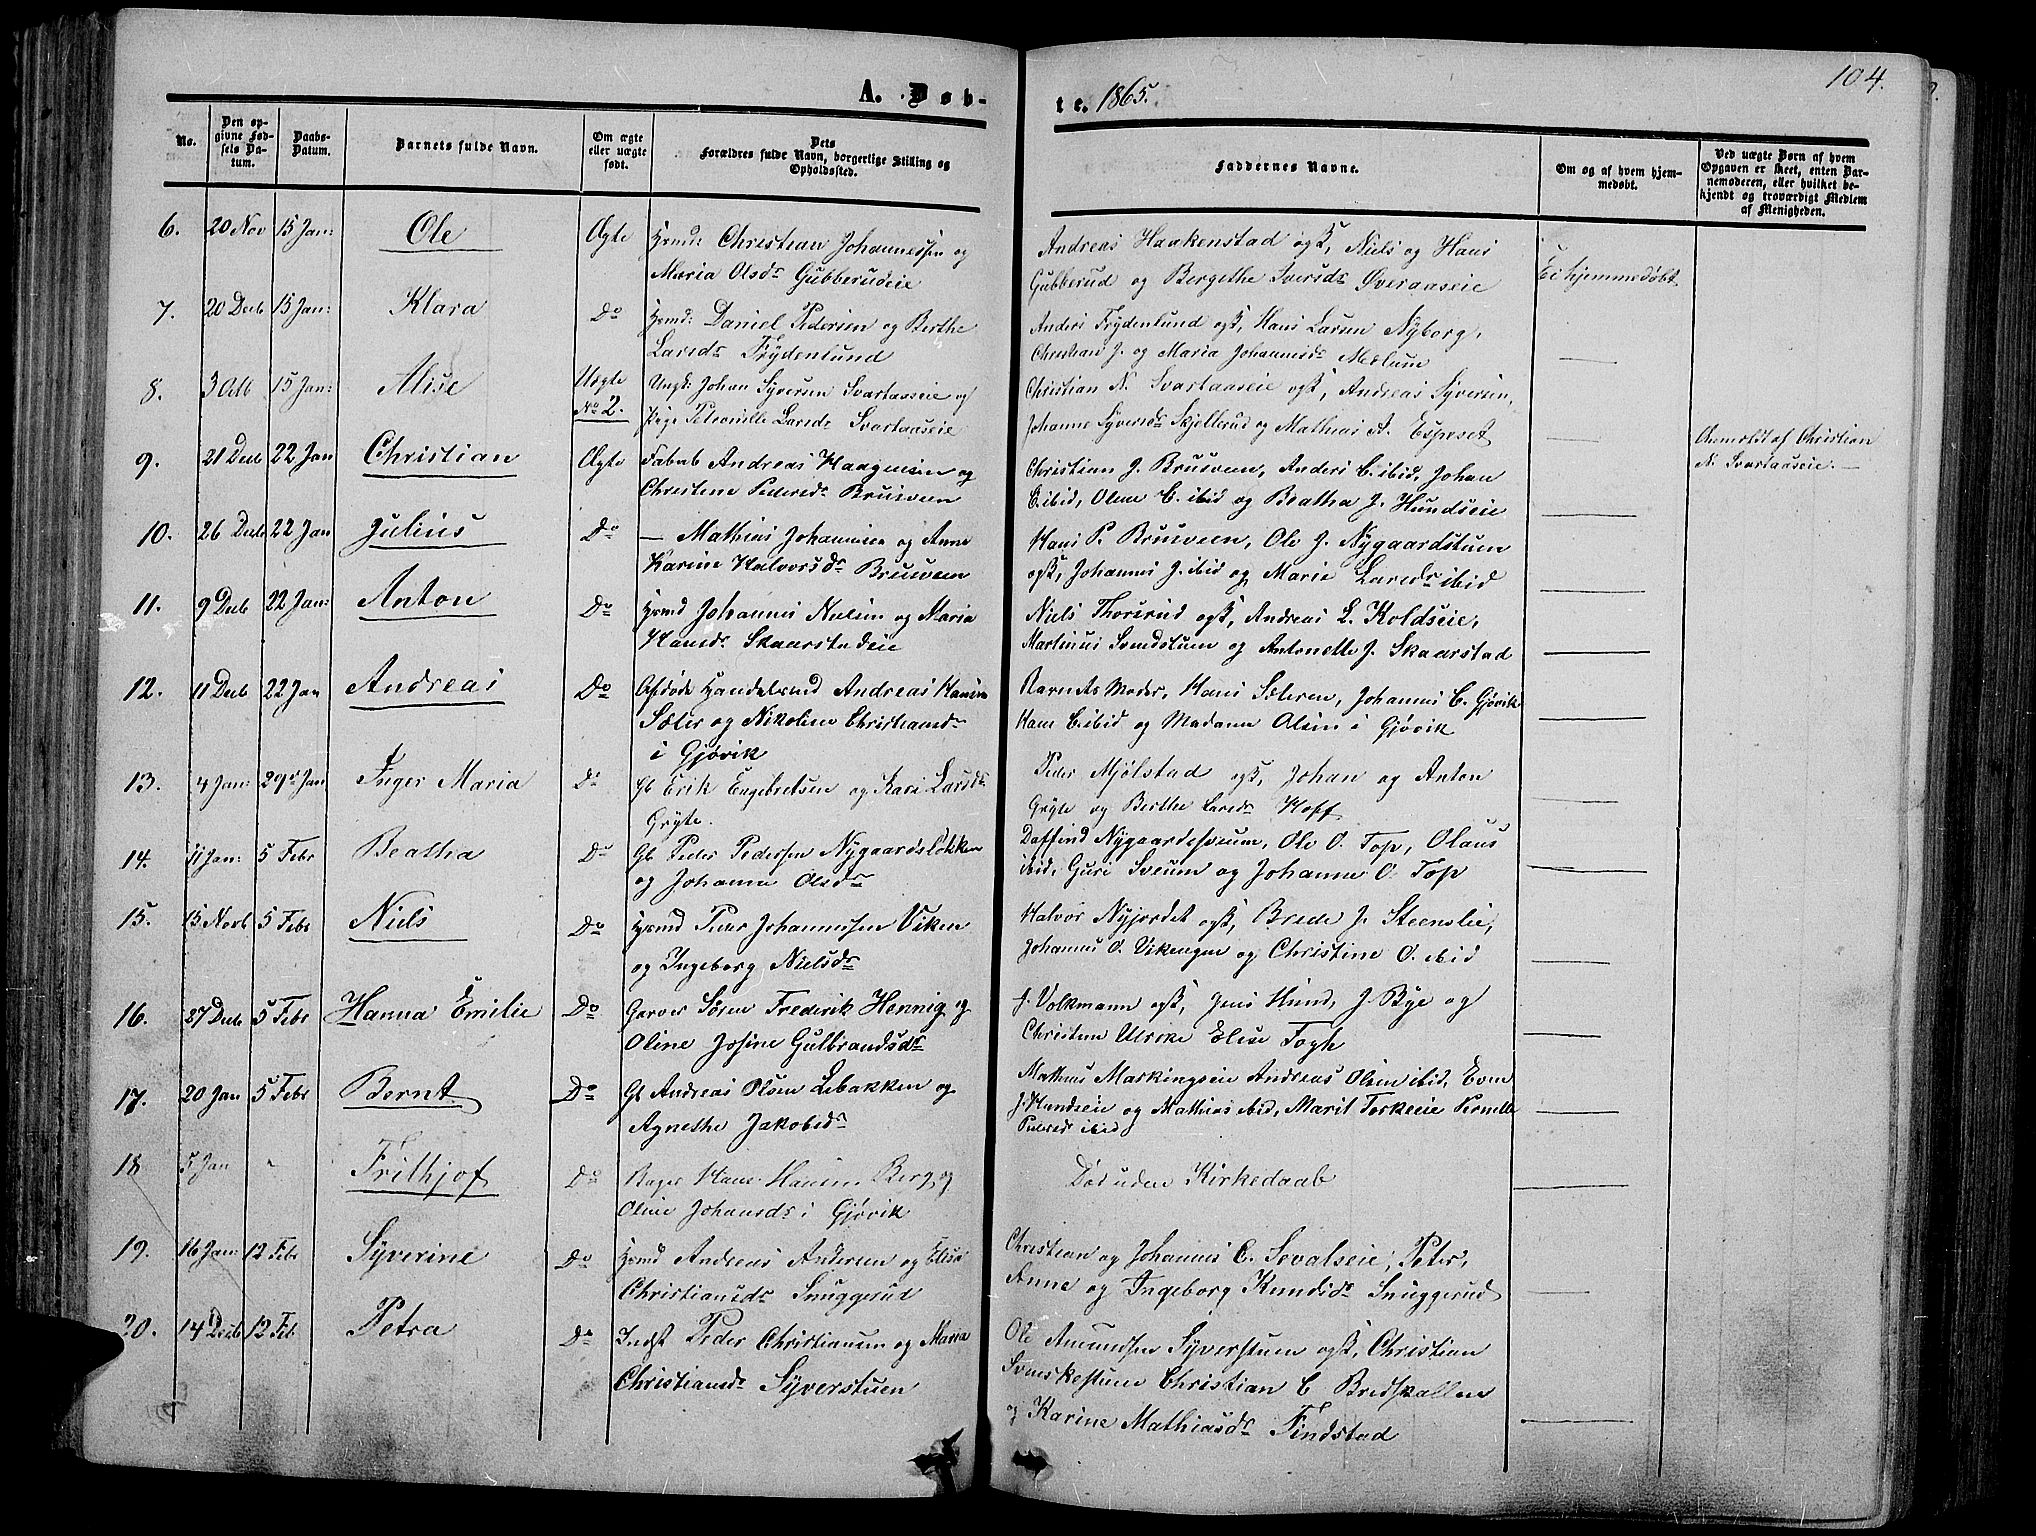 104.
A. Døb-
te. 1865.
No.
Den op-
givne Fød-
sels Da-
tum.
Daabs-
Datum.
Barnets fulde Navn.
Om ægte
eller uægte
født.
Dets
Forældres fulde Navn, borgerlige Stilling og
Opholdssted.
Faddernes Navne.
Om og af hvem hjem-
medøbt.
Ved uægte Børn af hvem
Opgaven er skeet, enten Bar-
nemoderen, eller hvilket be-
kjendt og troværdigt Medlem
af Menigheden.
6. 20 Nov 15 Jan: Ole Ægte Hmd: Christian Johannessen og
Maria Olsdr Gubberudeie
Andreas Haakenstad ogsk, Niels og Hans
Gubberud og Bergethe Iversdr Øveraaseie
Ei hjemmedøbt
7. 20 Decb 15 Jan: Klara Do Hmd: Daniel Pedersen og Berthe
Larsdr Frydenlund
Anders Frydenlund ogsk, Hans Larsen Nyborg,
Christian J. og Maria Johannisdr Mælum
8. 3 Octb 15 Jan: Alise Uægte
No 2.
Ungk: Johan Syversen Svartaaseie og
Pige Petronille Larsdr Svartaaseie
Christian N. Svartaaseie ogsk, Andreas Syversen,
Johanne Syversdr Skjellerud og Mathias A. Espeset
Anmeldt af Christian
N. Svartaaseie.
9. 21 Decb 22 Jan Christian Ægte Fabrb Andreas Haagensen og
Christine Pedersdr Bruveen
Christian J. Bruveen, Anders C. ibid, Johan
C. ibid, Olene C. ibid og Beatha J. Hundseie
10. 26 Decb 22 Jan Julius Do — Mathias Johannsen og Anne
Karine Halvorsdr Bruveen
Hans P. Bruveen, Ole J. Nygaardstuen
ogsk, Johannes J. ibid og Marie Larsdr ibid
11. 9 Decb 22 Jan: Anton Do Hmd Johannes Nielsen og Maria
Hansdr Skaarstadeie
Niels Thorsrud ogsk, Andreas L. Koldseie,
Martinus Svendstuen og Antonette J. Skaarstad
12. 11 Decb 22 Jan Andreas Do Afdøde Handelsmd Andreas Hansen
Sæter og Nikoline Christiansdr
i Gjøvik
Barnets Moder, Hans Sæteren, Johannes C. Gjøvik
Hans C. ibid og Madame Olsen i Gjøvik
13. 4 Jan: 29 Jan Inger Maria Do Gb Erik Engebretsen og Kari Larsdr
Gryte.
Peder Mjølstad ogsk, Johan og Anton
Gryte og Berthe Larsdr Hoff
14. 11 Jan: 5 Febr Beatha Do Gb Peder Pedersen Nygaardsløkken
og Johanne Olsdr
Daffind Nygaardssveum, Ole O. Top, Olaus
ibid, Guri Sveum og Johanne O. Top
15. 15 Novb 5 Febr Niels Do Hmd Peder Johannessen Viken
og Ingeborg Nielsdr
Halvor Nyjordet ogsk, Brede J. Steenslie,
Johannes O. Vikengen og Christine O. ibid
16. 27 Decb 5 Febr Hanna Emilie Do Garver Søren Frederik Hennig og
Oline Josine Gulbrandsdr
J. Volkmann ogsk, Jens Hund, J. Bye og
Christine Ulrike Elise Fogh
17. 20 Jan 5 Febr Bernt Do Gb Andreas Olsen Libakken og
Agnethe Jakobsdr
Mathias Markingseie Andreas Olsen ibid, Even
J. Hundseie og Mathias ibid, Marit Torkeeie Pernille
Pedersdr ibid
18 5 Jan Frithjof Do Bager Hans Hansen Berg og
Oline Johansdr i Gjøvik
Død uden Kirkedaab
19. 16 Jan: 12 Febr Syverine Do Hmd Andreas Andersen og Elisa
Christiansdr Snuggerud
Christian og Johannes C. Sevalseie, Peter,
Anne og Ingeborg Knudsdr Snuggerud
20. 14 Decb 12 Feb Petra Do Indst Peder Christiansen og Maria
Christiansdr Syverstuen
Ole Amundsen Syverstuen ogsk, Christian
Svenskestuen Christian C Bredskallen
og Karine Mathiasdr Findstad